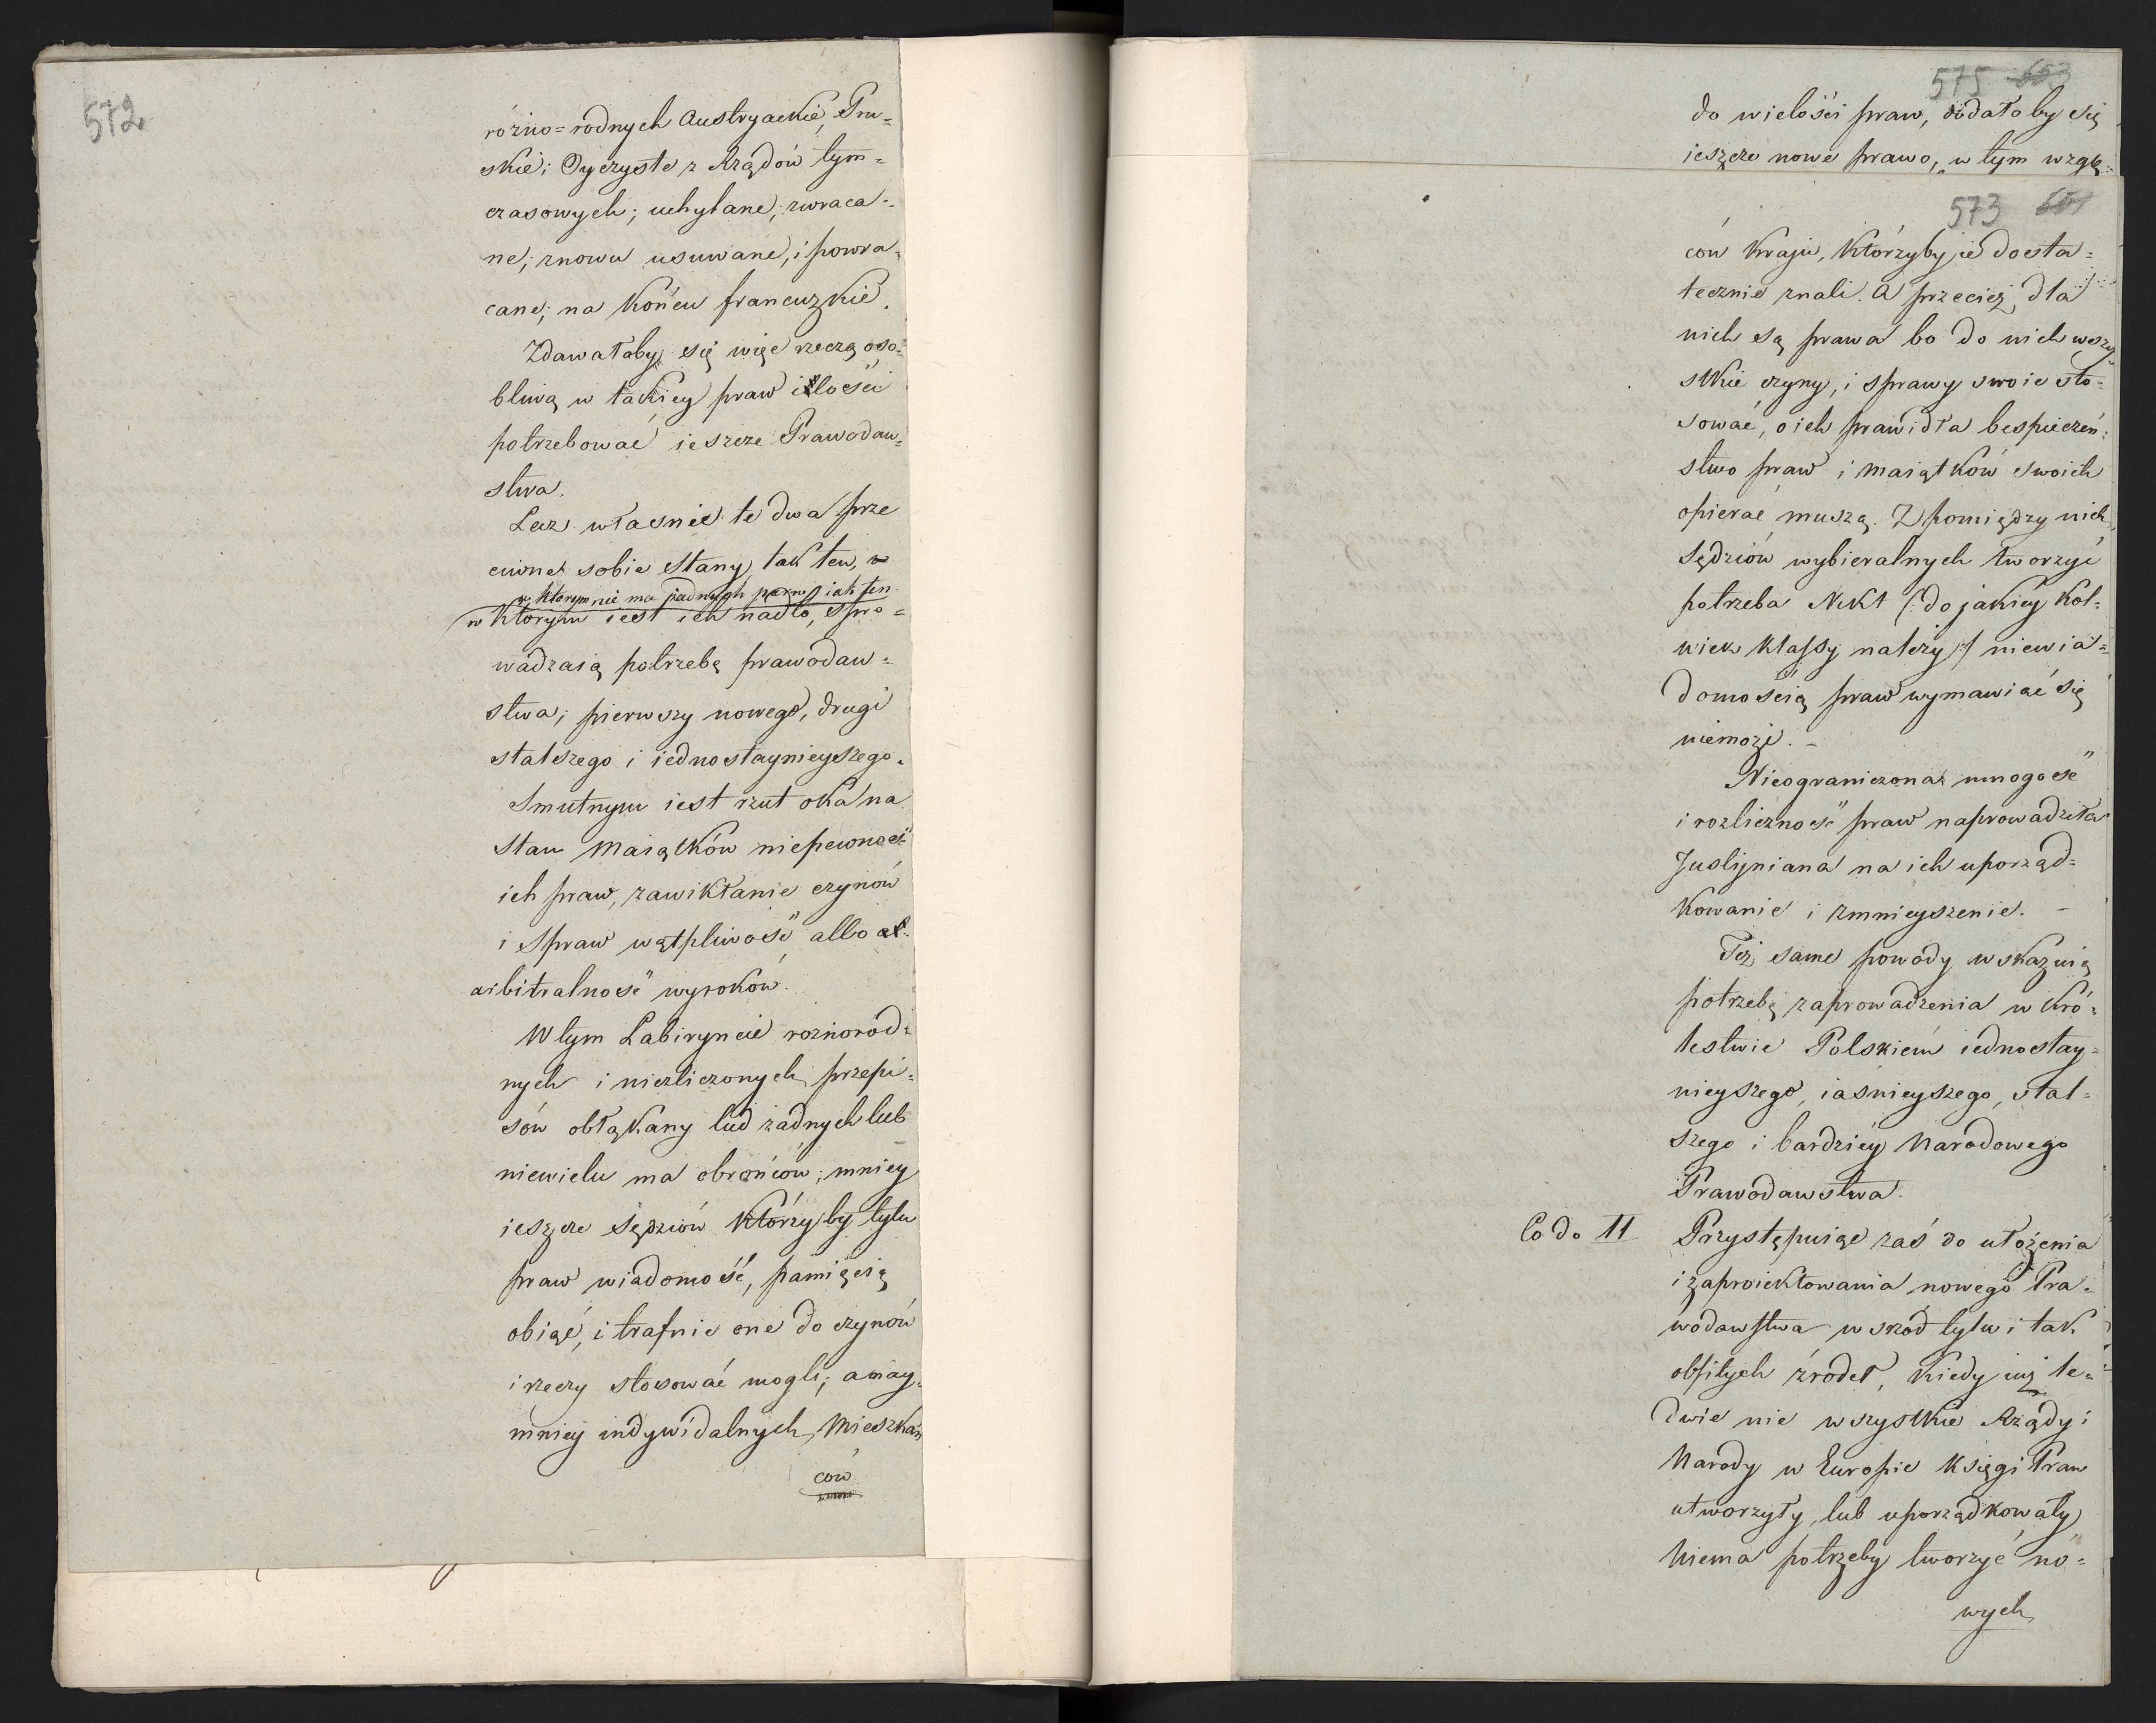 572
różno=rodnych Austryackie, Pru=
skie; Oyczyste z Rządów tym=
czasowych; uchylane; zwraca=
ne; znowu usuwane, i powra=
cane; na końcu francuzkie.
Zdawałaby się więc rzeczą oso=
bliwą w takiey praw ilości
potrzebować ieszcze Prawodaw=
stwa.
Lecz własnie te dwa prze
ciwne sobie stany, tak ten,
w ktorym nie ma żadnych praw iak ten
w którym iest ich nadto, spro=
wadzaią potrzebę prawodaw=
stwa; pierwszy nowego, drugi
stalszego i iednostaynieyszego.
Smutnym iest rzut oka na
stan Maiątków niepewność
ich praw, zawikłanie czynów
i Spraw wątpliwość, albo
arbitralność wyroków.
W tym Labiryncie roznorod=
nych i niezliczonych przepi=
sów obłąkany lud żadnych lub
niewielu ma obrońców; mniey
ieszcze Sędziów którzy by tylu
praw wiadomość, pamięcią
obiąć, i trafnie one do czynów
i rzeczy stosować mogli; a nay=
mniey indywidalnych, Mieszkań
ców
575 653
do wielości praw, dodałoby się
ieszcze nowe prawo, w tym wzglę=
573 651
ców kraju, którzyby ie dosta=
tecznie znali. A przecież dla
nich są prawa bo do nich wszy=
stkie czyny, i sprawy swoie sto=
sować, o ich prawidła bespieczeń=
stwo praw i maiątków swoich
opierać muszą. Z pomiędzy nich
Sędziów wybieralnych tworzyć
potrzeba Nikt /: do jakiey kol=
wiek klassy należy :/ niewia=
domością praw wymawiać się
niemoże. –
Nieograniczona mnogość
i rozliczność praw naprowadziła
Justyniana na ich uporząd=
kowanie i zmnieyszenie. –
Też same powody wskazuią
potrzebę zaprowadzenia w Kró=
lestwie Polskiém iednostay=
nieyszego, iaśnieyszego, stal=
szego i bardziey Narodowego
Prawodawstwa.
Co do II Przystępuiąc zaś do ułożenia
i zaproiektowania nowego Pra=
wodawstwa w sród tylu i tak
obfitych źrodeł, kiedy iuż le=
dwie nie wszystkie Rządy i
Narody w Europie księgi Praw
utworzyły, lub uporządkowały
Niema potrzeby tworzyć no=
wych